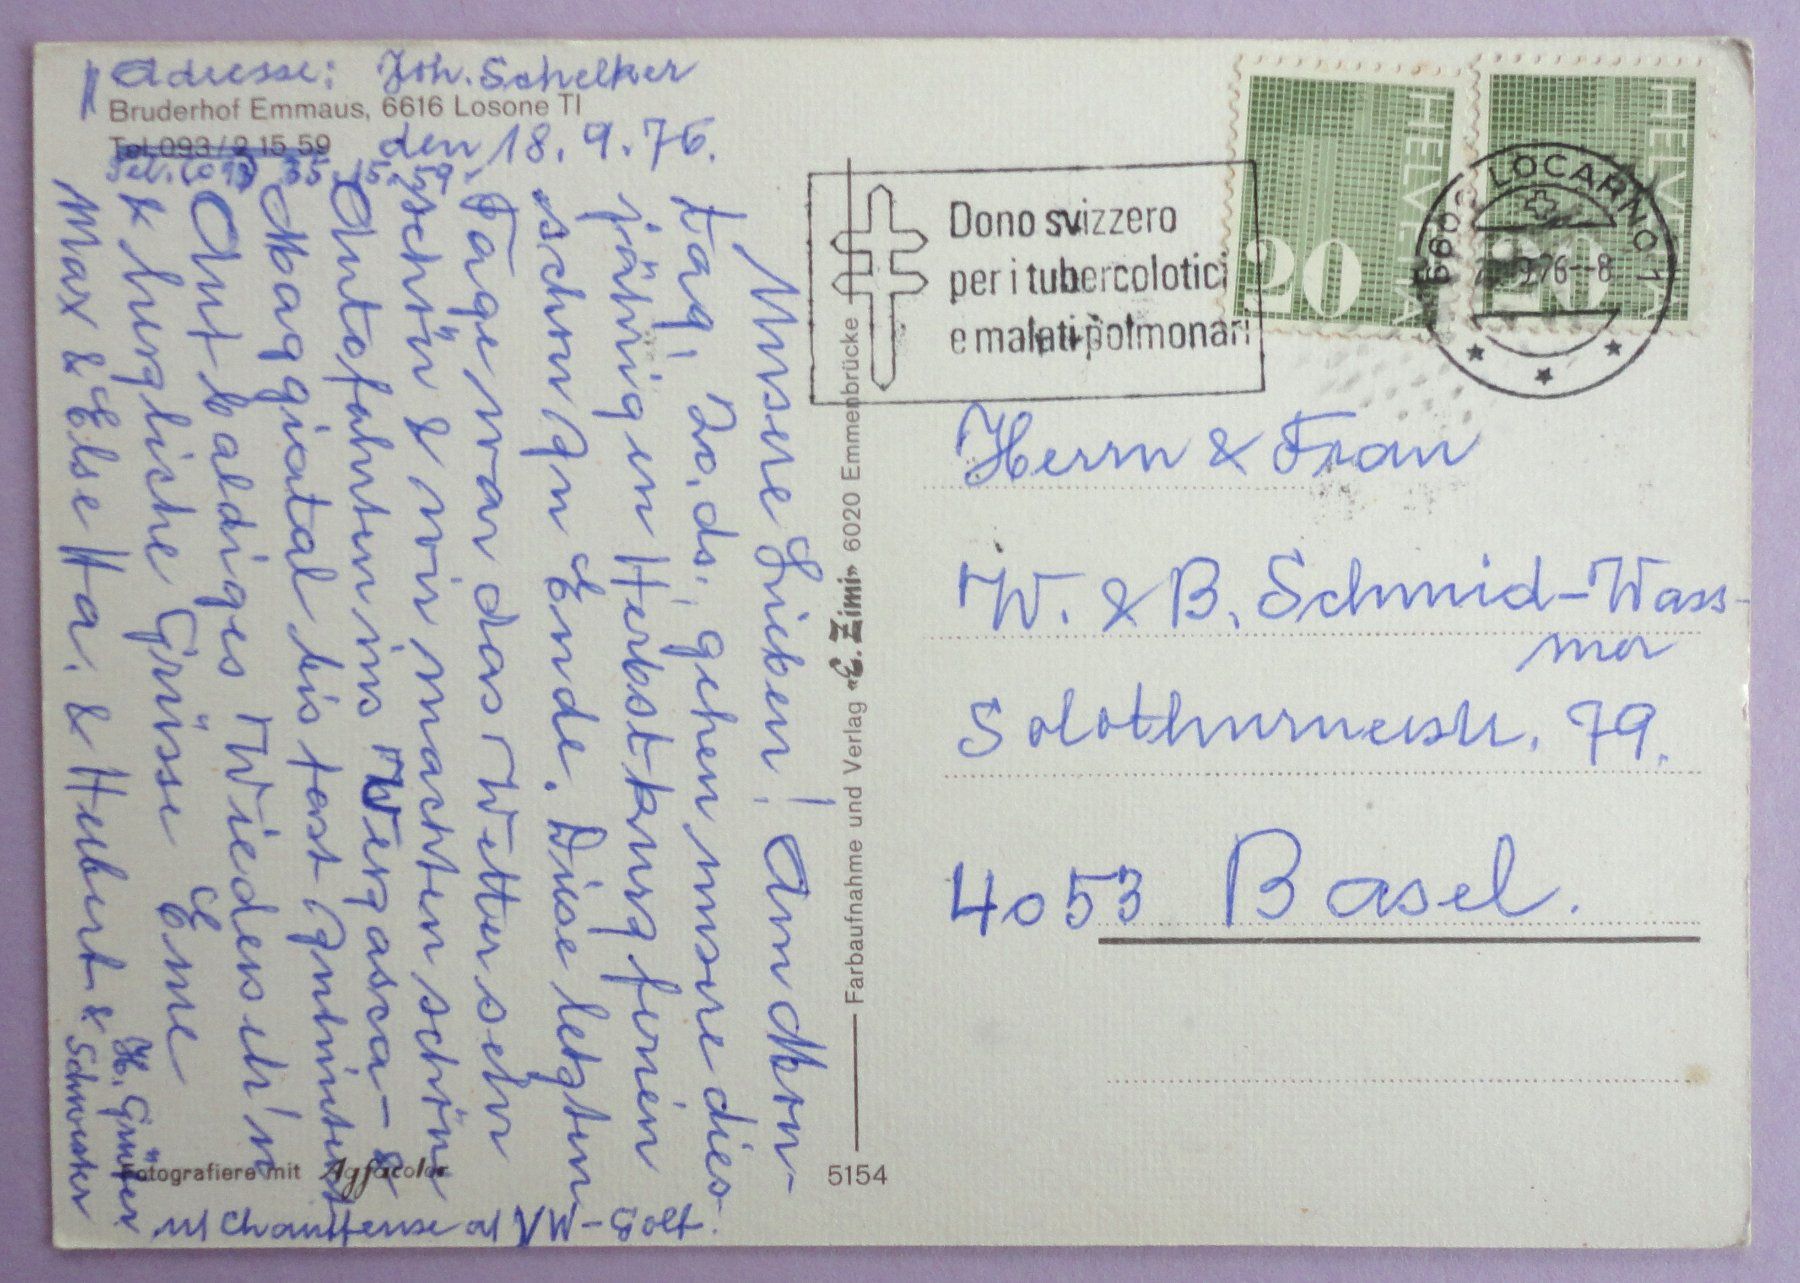 Adresse: Joh. Schelker
Bruderhof Emmaus, 6616 Losone TI
Tel. 093 / 2 15 59
Tel. (093) 35.15.59.
den 18.9.76.
Unsere Lieben! Am Mon-
tag, 20. ds. gehen unsere dies
jährigen Herbstkurzferien
schon zu Ende. Diese letzten
Tage war das Wetter sehr
schön & wir machten schöne
Autofahrten ins Vergasca- &
Maggiatal bis fast zuhinterst
Auf baldiges Wiederseh'n
& herzliche Grüsse Eure
Max & Else Ha. & Hubert &
H. Günter
Schwester
u/ Chauffeuse a/ VW-Golf.
Fotografiere mit Agfacolor
Farbaufnahme und Verlag «E. Zimi» 6020 Emmenbrücke
5154
Dono svizzero
per i tubercolotici
e malati polmonari
HELVETIA
20
HELVETIA
20
6600 LOCARNO 1
9.76--8
Herrn & Frau
W. & B. Schmid-Wass-
mer
Solothurnerstr. 79.
4053 Basel.